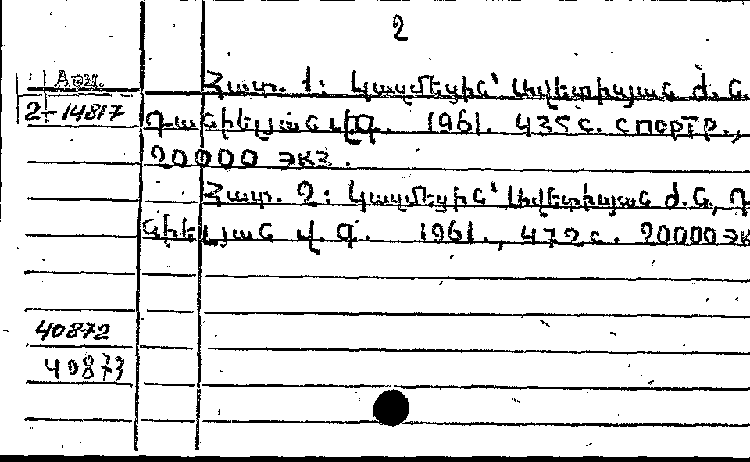 2
Арм.
2-14817
Հատ. 1: Կազմեցին՝ Ավետիսյան Ժ. Ն.
Դանիելյան Վ. Գ. 1961. 435 с. с портр.,
20000 экз.
Հատ. 2: Կազմեցին՝ Ավետիսյան Ժ. Ն., Դ
նիելյան Վ. Գ. 1961., 472 с. 20000 эк
40872
40873